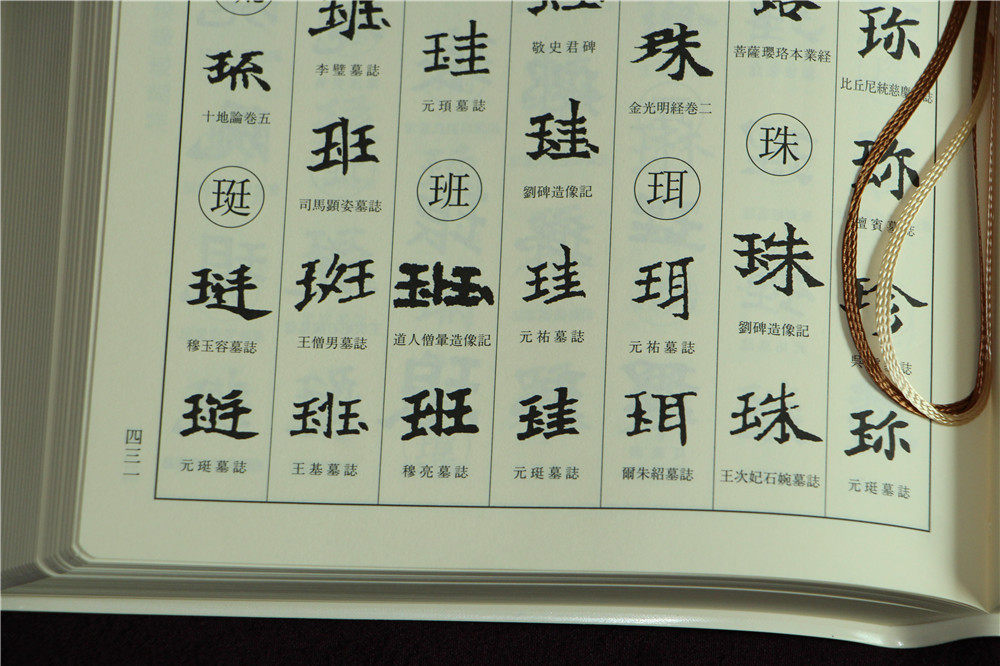 珎
比丘尼統慈慶墓誌
珎
檀賓墓誌
珍
誌
珎
元珽墓誌
菩薩瓔珞本業経
珠
珠
劉碑造像記
珠
王次妃石婉墓誌
珠
金光明経巻二
珥
珥
元祐墓誌
珥
爾朱紹墓誌
敬史君碑
珪
劉碑造像記
珪
元祐墓誌
珪
元珽墓誌
珪
元頊墓誌
班
班
道人僧暈造像記
班
穆亮墓誌
班
李璧墓誌
班
司馬顕姿墓誌
班
王僧男墓誌
班
王基墓誌
十地論巻五
珽
珽
穆玉容墓誌
珽
元珽墓誌
四三一